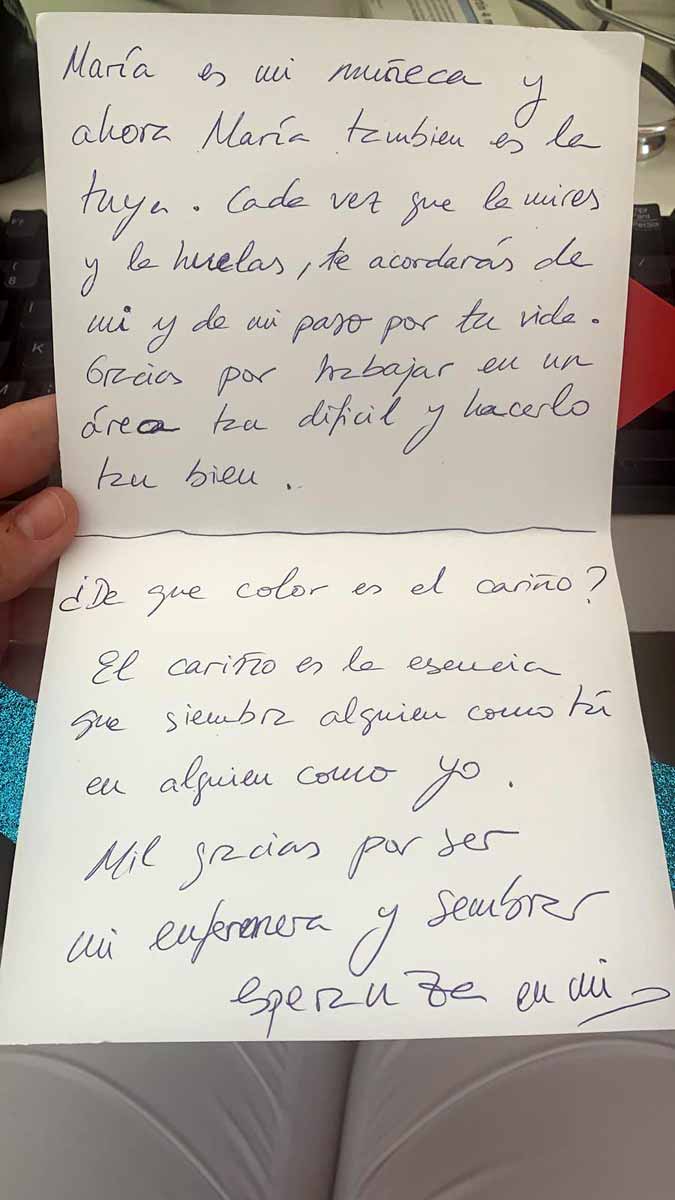 María es mi muñeca y
ahora María tambien es la
tuya. Cada vez que la mires
y la huelas, te acordarás de
mi y de mi paso por tu vida.
Gracias por trabajar en un
área tan dificil y hacerlo
tan bien.
¿De que color es el cariño?
El cariño es la esencia
que siembra alguien como tú
en alguien como yo.
Mil gracias por ser
mi enfermera y sembrar
esperanza en mi